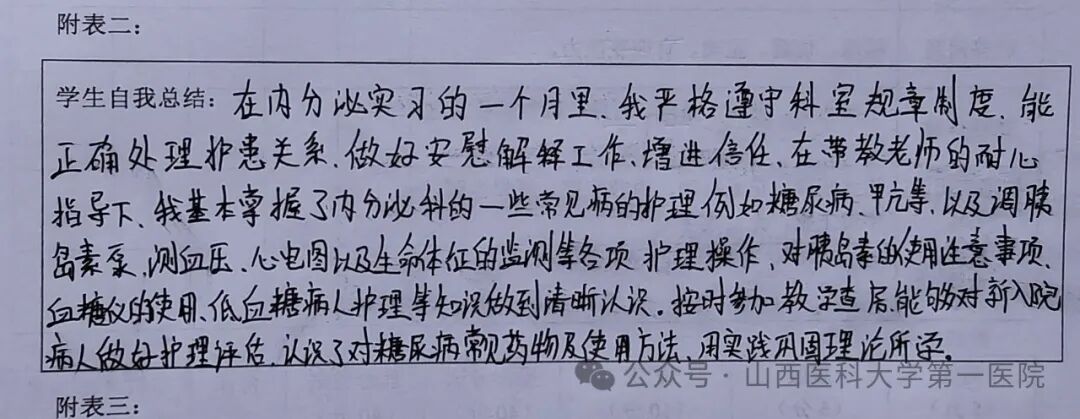 附表二:
学生自我总结: 在内分泌实习的一个月里、我严格遵守科室规章制度、能
正确处理护患关系、做好安慰解释工作、增进信任、在带教老师的耐心
指导下、我基本掌握了内分泌科的一些常见病的护理,例如糖尿病、甲亢等、以及调胰
岛素泵、测血压、心电图以及生命体征的监测等各项护理操作、对胰岛素的使用注意事项、
血糖仪的使用、低血糖病人护理等知识做到清晰认识。按时参加教学查房,能够对新入院
病人做好护理评估、认识了对糖尿病常见药物及使用方法、用实践巩固理论所学。
公众号·山西医科大学第一医院
附表三: